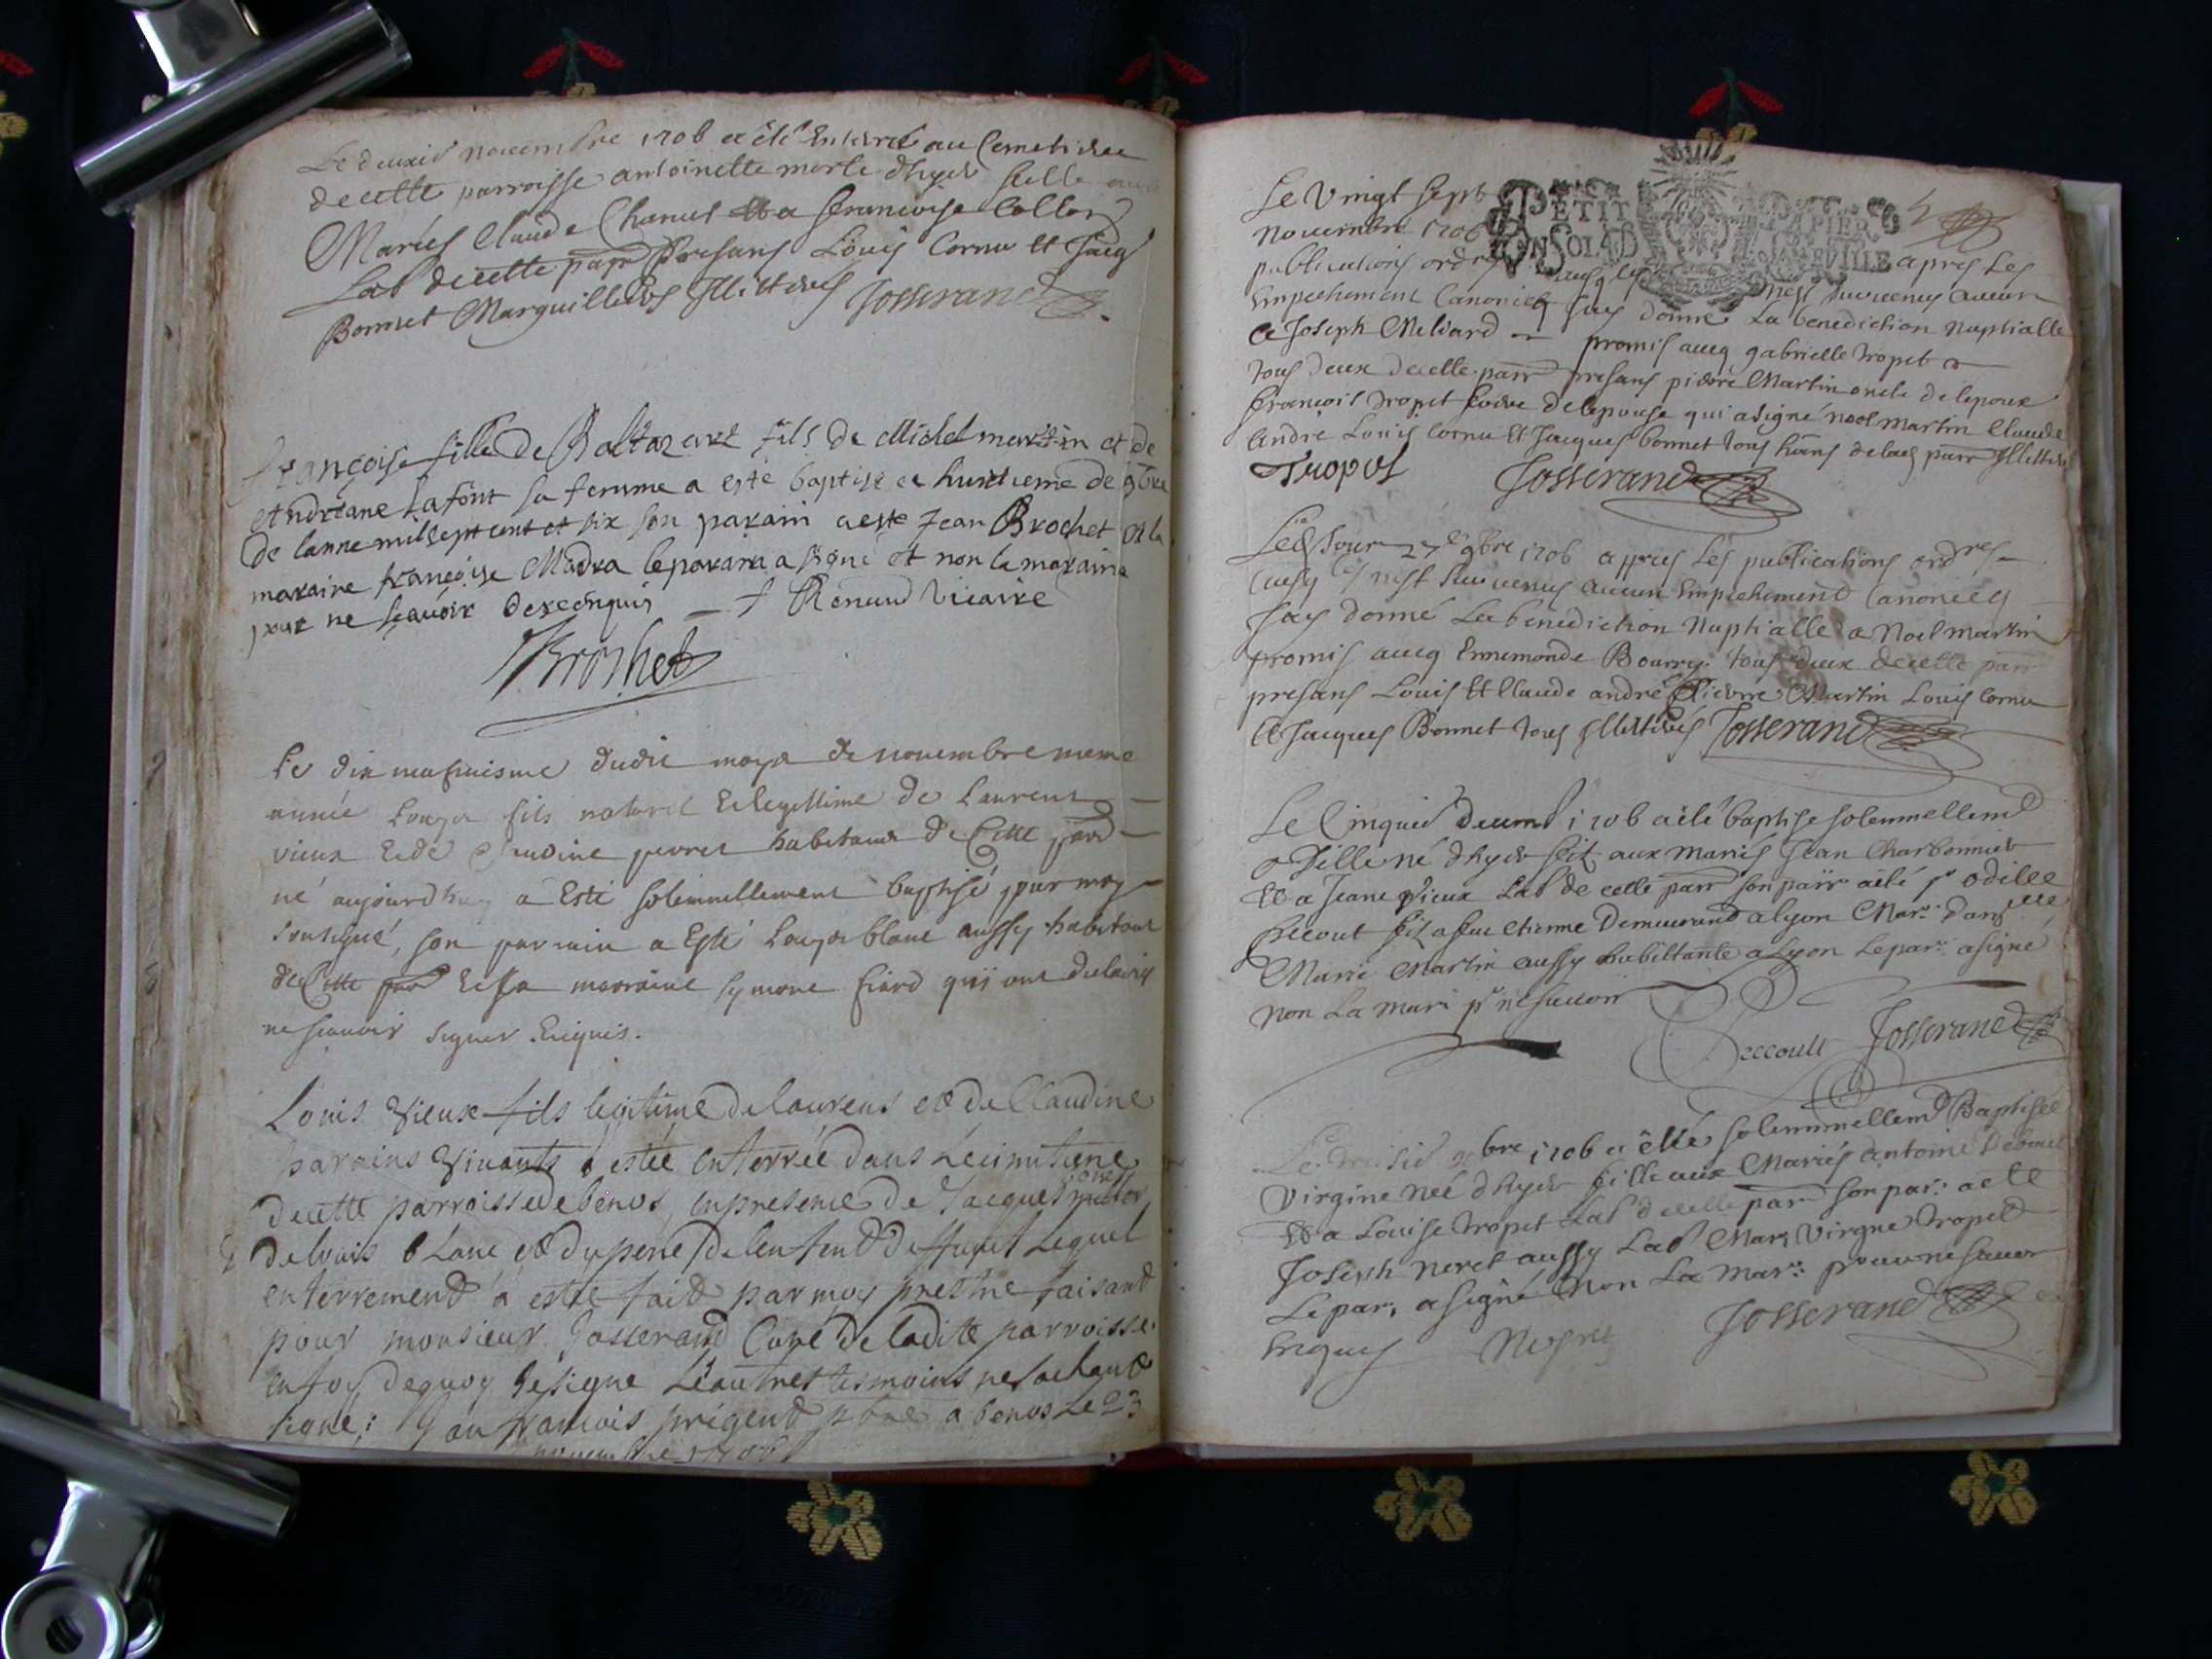 Le deuxie novembre 1706 a été Enterré au Cemetiere
de cette parroisse antoinette morte dhyer fille aux
Mariés Claude Chanut et a francoise Collon
Lab de cette parr presans Louis Cornu et Jacq
Bonnet Marguilliers Illitérés Josserand
françoise fille De Baltazard fils de Michel martin et de
et Lafont sa femme a esté baptise ce huictieme de 9bre
de lanne mil sept cent et six son parain a este Jean Brochet et la
maraine françoise Madra le parain a signé et non la maraine
pour ne scavoir de ce enquis Renaud Vicaire
Brochet
Le dix neufuiesme dudit moys de novembre meme
année Louys fils naturel et legitime de Laurens
vieux et de Claudine habitans de Cette parr
né aujourdhuy a Esté solennellement baptisé par moy
soussigné, son parrain a Esté Louys blanc aussy habitant
de Cette parr et sa marraine symone fiard qui ont
ne scauoir signer Enquis.
Louis Vieux fils legitime de laurens et de Claudine
parains vivants a estée enterrée dans le cimitiere
de cette parroisse de benos, en presence de Jacques
de louis blanc et du pere de lenfent deffunt Lequel
enterrement a esté fait par moy prestre faisant
pour monsieur Josserand Curé de ladite parroisse.
en foy de quoy Je signe Les autres tesmoins ne sachant
signé: Jan francois prigent ptre a benos Le 23
novembre 1706
Le Vingt sept PETIT PAPIER
novembre 1706 CONSOLAD
publications ordres apres Les
Empechement Canonicq Jay donné La benediction Nuptialle
a Joseph Meliard promis avecq gabrielle Tropet
tous deux de cette parr presans pierre Martin oncle de lepoux
francois Tropet frere de lepouse qui a signé noel martin Claude
andre Louis Cornu et Jacques bonnet tous de lad parr Illitérés
Tropet Josserand
Led Jour 27e 9bre 1706 appres Les publications ordres
nest survenus aucun Empechement Canonicq
Jay donné La benediction Nuptialle a Noel martin
promis avecq Ennemonde Bourry tous deux de cette parr
presans Louis et Claude andre Pierre Martin Louis Cornu
et Jacques Bonnet tous Illittérés Josserand
Le Cinquie decemb 1706 a été baptise solemnellemt
odille né dhyer fils aux mariés Jean Charbonnier
et a Jeane Vieux Lab de cette parr son parr a été sr odille
fils a feu etienne Demeurand a lyon Mar: dam
Marie Martin aussy habittante a Lyon Le par: a signé
non La mari pr ne scauoir
Josserand
Le bre 1706 a êtté solemnellemt Baptisée
Virgine neé dhyer fille aux Mariés antoine
et a Louise Tropet Lab de cette parr son par: a ete
Joseph neret aussy Lab Mar: Virgine Tropet
Le par: a signé Non La Mar:: pour ne scauoir
Enquis Josserand